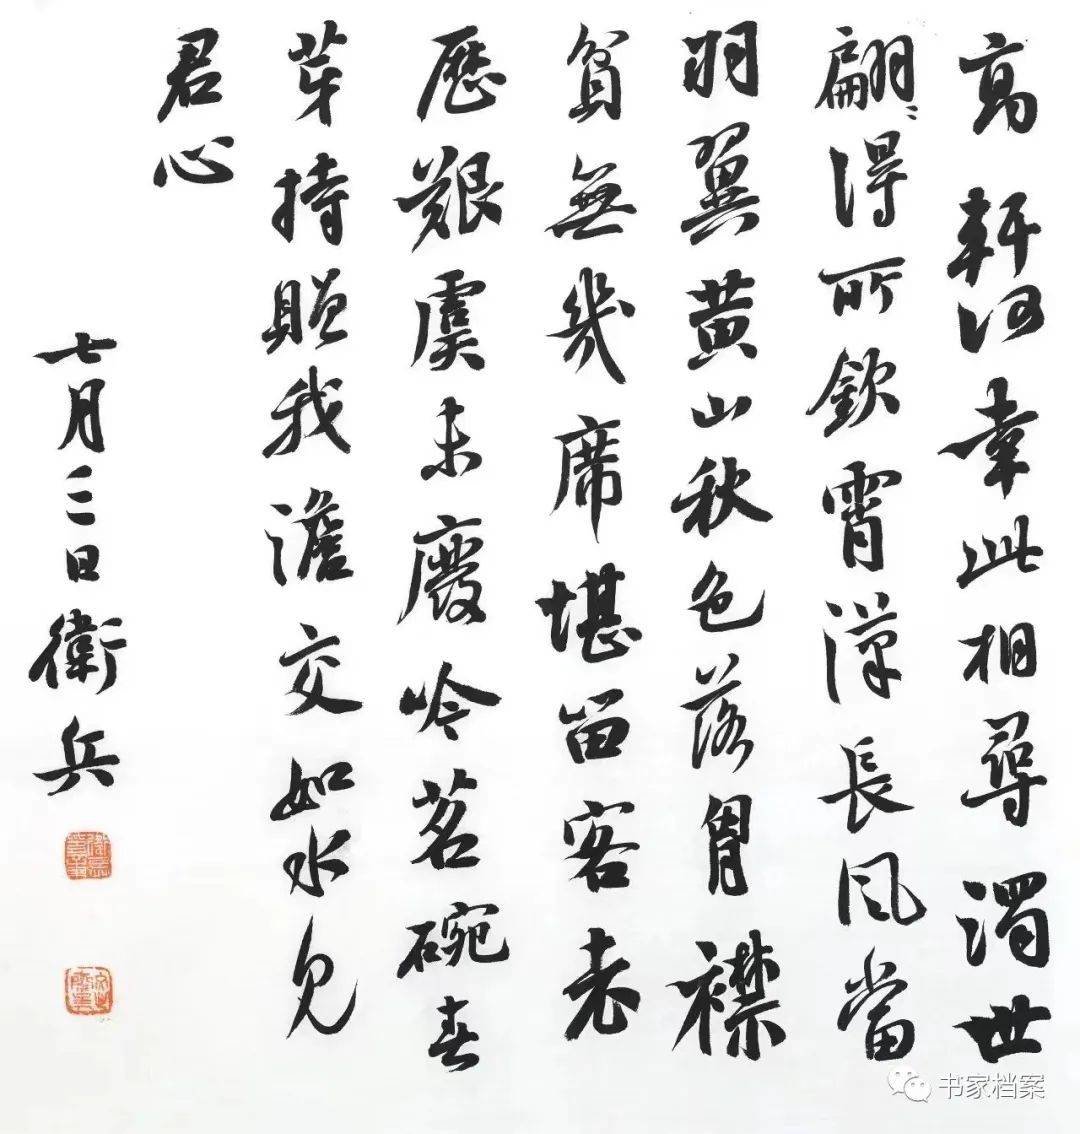 高軒何幸此相尋濁世
翩〻得所欽霄漢長風當
羽翼黃山秋色落胷襟
貧無幾席堪留客老
歷艱虞未廢吟茗碗春
芽持贈我澹交如水見
君心
七月三日衛兵
书家档案